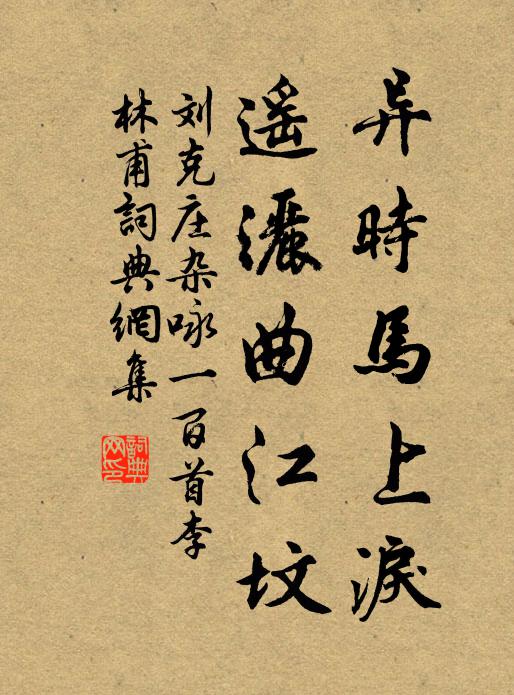 异時馬上淚
遥灑曲江坟
刘克庄杂咏一百首李
林甫詞典網集
詞典
网印